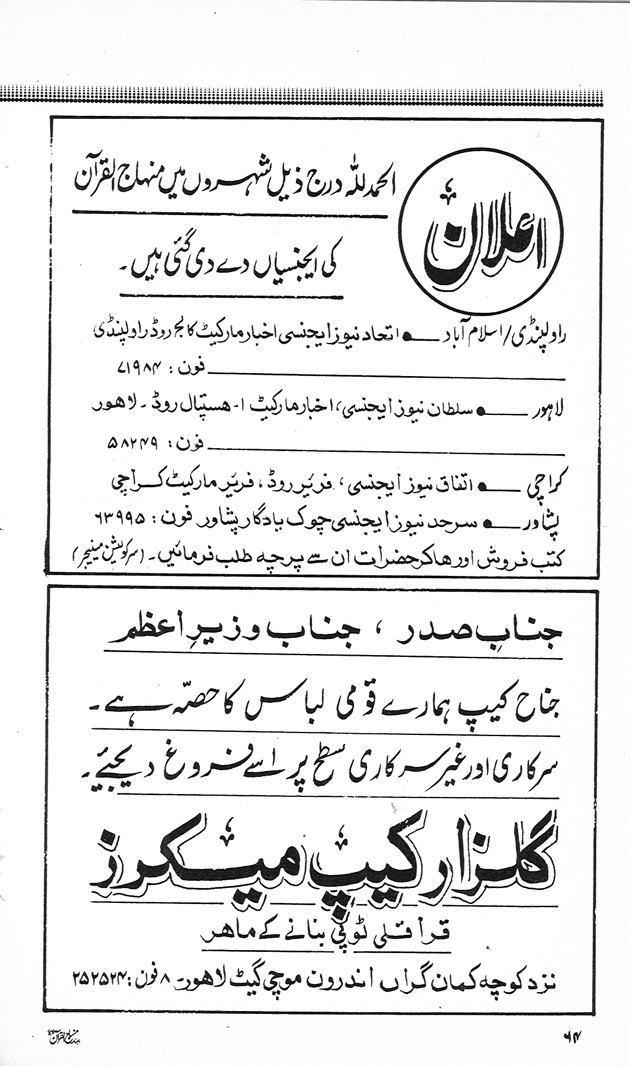 اعلان
الحمدللہ درج ذیل شہروں میں منہاج القرآن
کی ایجنسیاں دے دی گئی ہیں۔
راولپنڈی/اسلام آباد ـــ● اتحاد نیوز ایجنسی اخبار مارکیٹ کالج روڈ راولپنڈی
فون: ۷۱۹۸۴
لاہور ـــ● سلطان نیوز ایجنسی، اخبار مارکیٹ ۱- ہسپتال روڈ۔ لاہور
فون: ۵۸۲۴۹
کراچی ـــ● اتفاق نیوز ایجنسی، فریئر روڈ، فریئر مارکیٹ کراچی
پشاور ـــ● سرحد نیوز ایجنسی چوک یادگار پشاور فون: ۶۳۹۹۵
کتب فروش اور ہاکر حضرات ان سے پرچہ طلب فرمائیں۔ (سرکولیشن منیجر)
جنابِ صدر ، جناب وزیرِ اعظم
جناح کیپ ہمارے قومی لباس کا حصّہ ہے۔
سرکاری اور غیر سرکاری سطح پر اسے فروغ دیجئیے۔
گلزار کیپ میکرز
قراقلی ٹوپی بنانے کے ماہر
نزد کوچہ کمان گراں اندرون موچی گیٹ لاہور ۸ فون: ۲۵۲۵۲۴
۶۴
منہاج القرآن